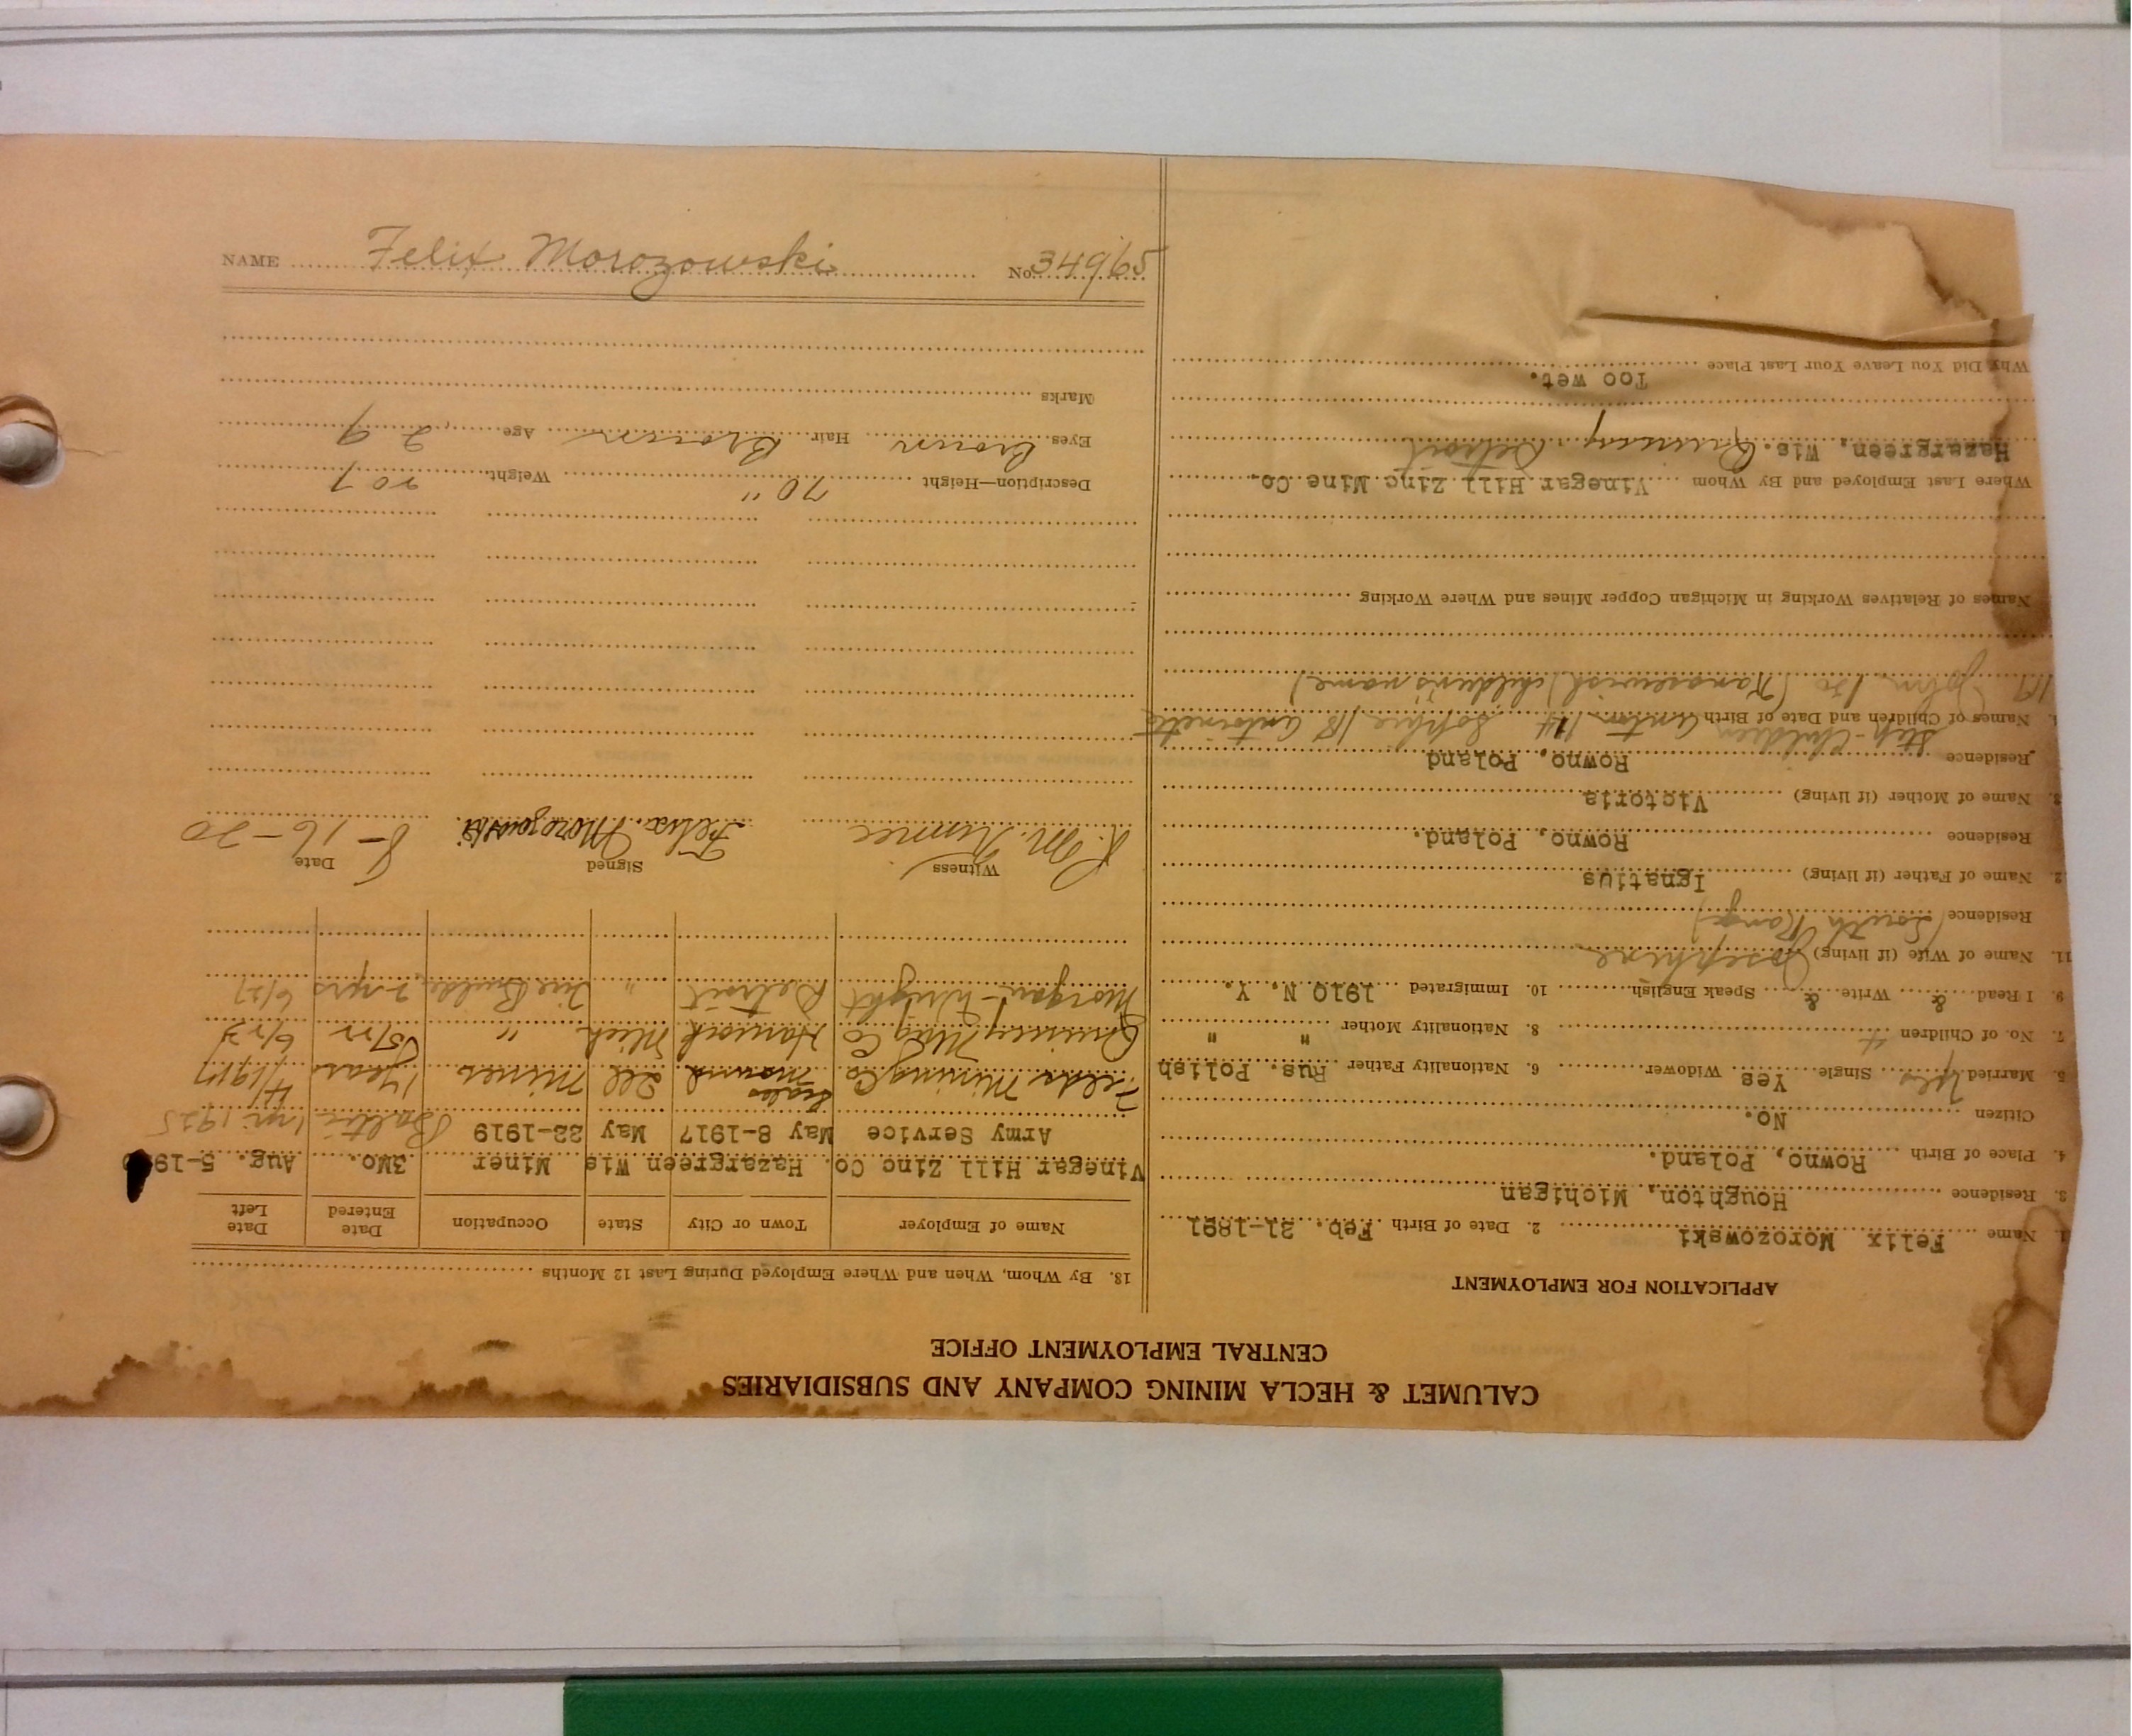 CALUMET & HECLA MINING COMPANY AND SUBSIDIARIES
CENTRAL EMPLOYMENT OFFICE
APPLICATION FOR EMPLOYMENT
1. Name Felix Morozowski 2. Date of Birth Feb. 21-1891
3. Residence Houghton, Michigan
4. Place of Birth Rowno, Poland.
Citizen No.
5. Married Yes Single Yes Widower 6. Nationality Father Rus. Polish
7. No. of Children 4 8. Nationality Mother " "
9. I Read & Write & Speak English 10. Immigrated 1910 N. Y.
11. Name of Wife (if living) Josephine
Residence (South Range)
2. Name of Father (if living) Ignatius
Residence Rowno, Poland.
3. Name of Mother (if living) Victoria
Residence Rowno, Poland
Step-Children
Names of Children and Date of Birth Anton 114 Sophie 118 Antoinette
117 John 120 (children's name)
Names of Relatives Working in Michigan Copper Mines and Where Working
Where Last Employed and By Whom Vinegar Hill Zinc Mine Co.
Hazergreen, Wis. Quincy, Detroit
Why Did You Leave Your Last Place Too wet.
13. By Whom, When and Where Employed During Last 12 Months
Name of Employer Town or City State Occupation Date Entered Date Left
Vinegar Hill Zinc Co. Hazergreen Wis Miner 3Mo. Aug. 5-19
Army Service May 8-1917 May 22-1919 Baltic 1925
Mining Co. Scales Mound Ill Miner 1 Year 4/1917
Quincy Mng Co Hancock Mich " 5/22 6/23
Morgan-Wright Detroit " Tire Builder 2 yrs 6/27
Witness Signed Date
Felix Morozowski 8-16-20
Description—Height 70" Weight 207
Eyes Brown Hair Brown Age 29
Marks
NAME Felix Morozowski No. 34965